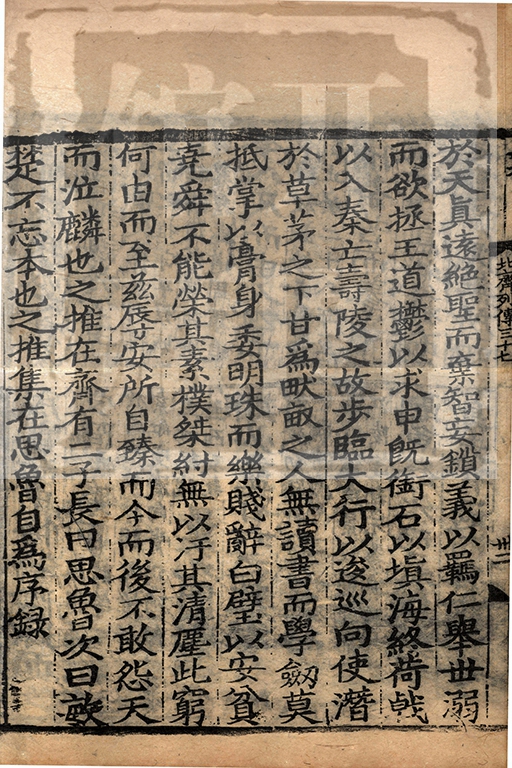 北齊列傳三十七
卅二
於天真遠絕聖而棄智妄鎖義以羈仁舉世溺
而欲拯王道鬱以求申旣銜石以塡海終荷戟
以入秦亡壽陵之故步臨大行以逡巡向使潛
於草茅之下甘爲畎畝之人無讀書而學劒莫
抵掌以膏身委明珠而樂賤辭白璧以安貧
堯舜不能榮其素樸桀紂無以汙其清塵此窮
何由而至茲辱安所自臻而今而後不敢怨天
而泣麟也之推在齊有二子長曰思魯次曰敏
楚不忘本也之推集在思魯自爲序録